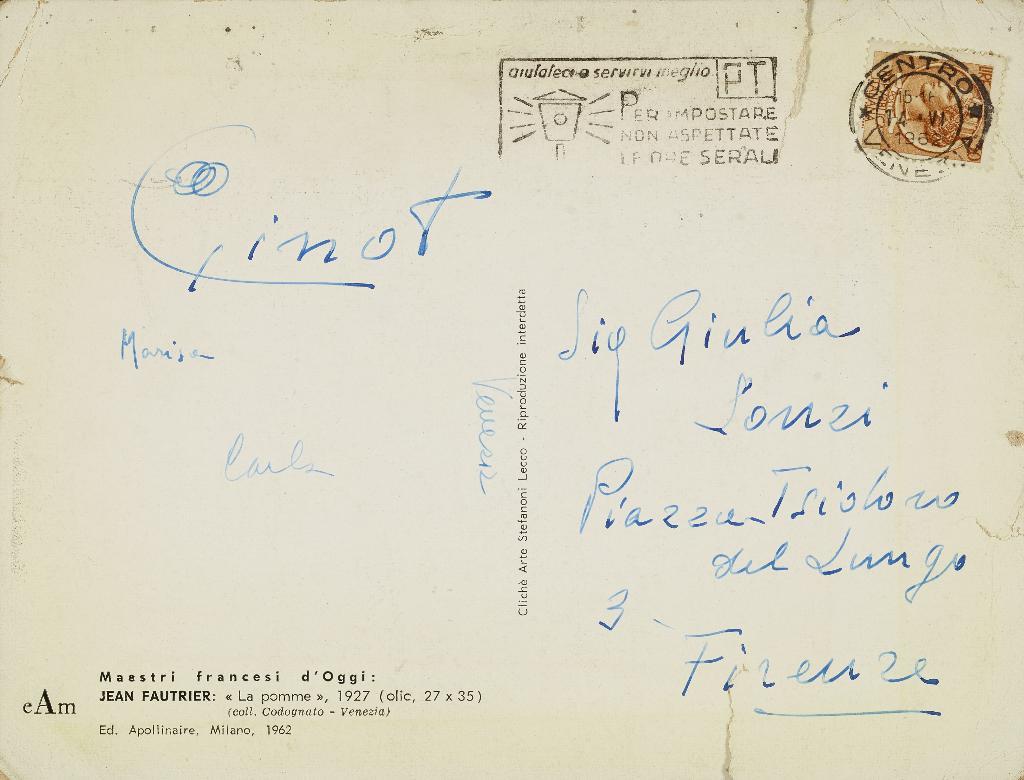 aiutateci a servirvi meglio
PT
PER IMPOSTARE
NON ASPETTATE
LE ORE SERALI
CENTRO
VENEZIA
Ginot
Marisa
Carla
Venezia
Clichè Arte Stefanoni Lecco - Riproduzione interdetta
Sig Giulia
Lonzi
Piazza Isidoro
del Lungo
3 -
Firenze
Maestri francesi d'Oggi:
JEAN FAUTRIER: « La pomme », 1927 (olic, 27 x 35)
(coll. Codognato - Venezia)
eAm
Ed. Apollinaire, Milano, 1962